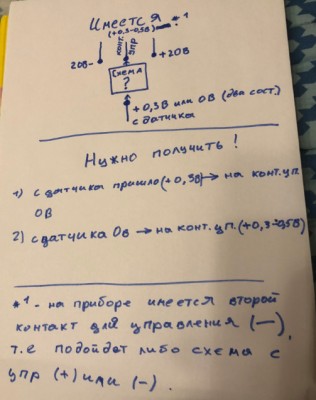 Имеется
(+0,3-0,5В) *1
конт. упр
20В- +20В
Схема
?
+0,3В или 0В (два сост.)
с датчика
Нужно получить!
1) с датчика пришло (+0,3В) → на конт.уп.
0В
2) с датчика 0в → на конт.уп. (+0,3-0,5В)
*1 - на приборе имеется второй
контакт для управления (—),
т.е подойдет либо схема с
упр (+) или (-).